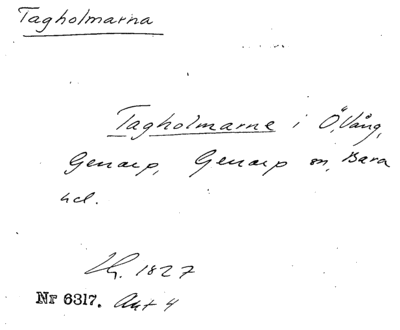 Tagholmarna
Tagholmarne i Ö. Vång,
Genarp, Genarp sn, Bara
hd.
1827
Nr 6317. Akt 4